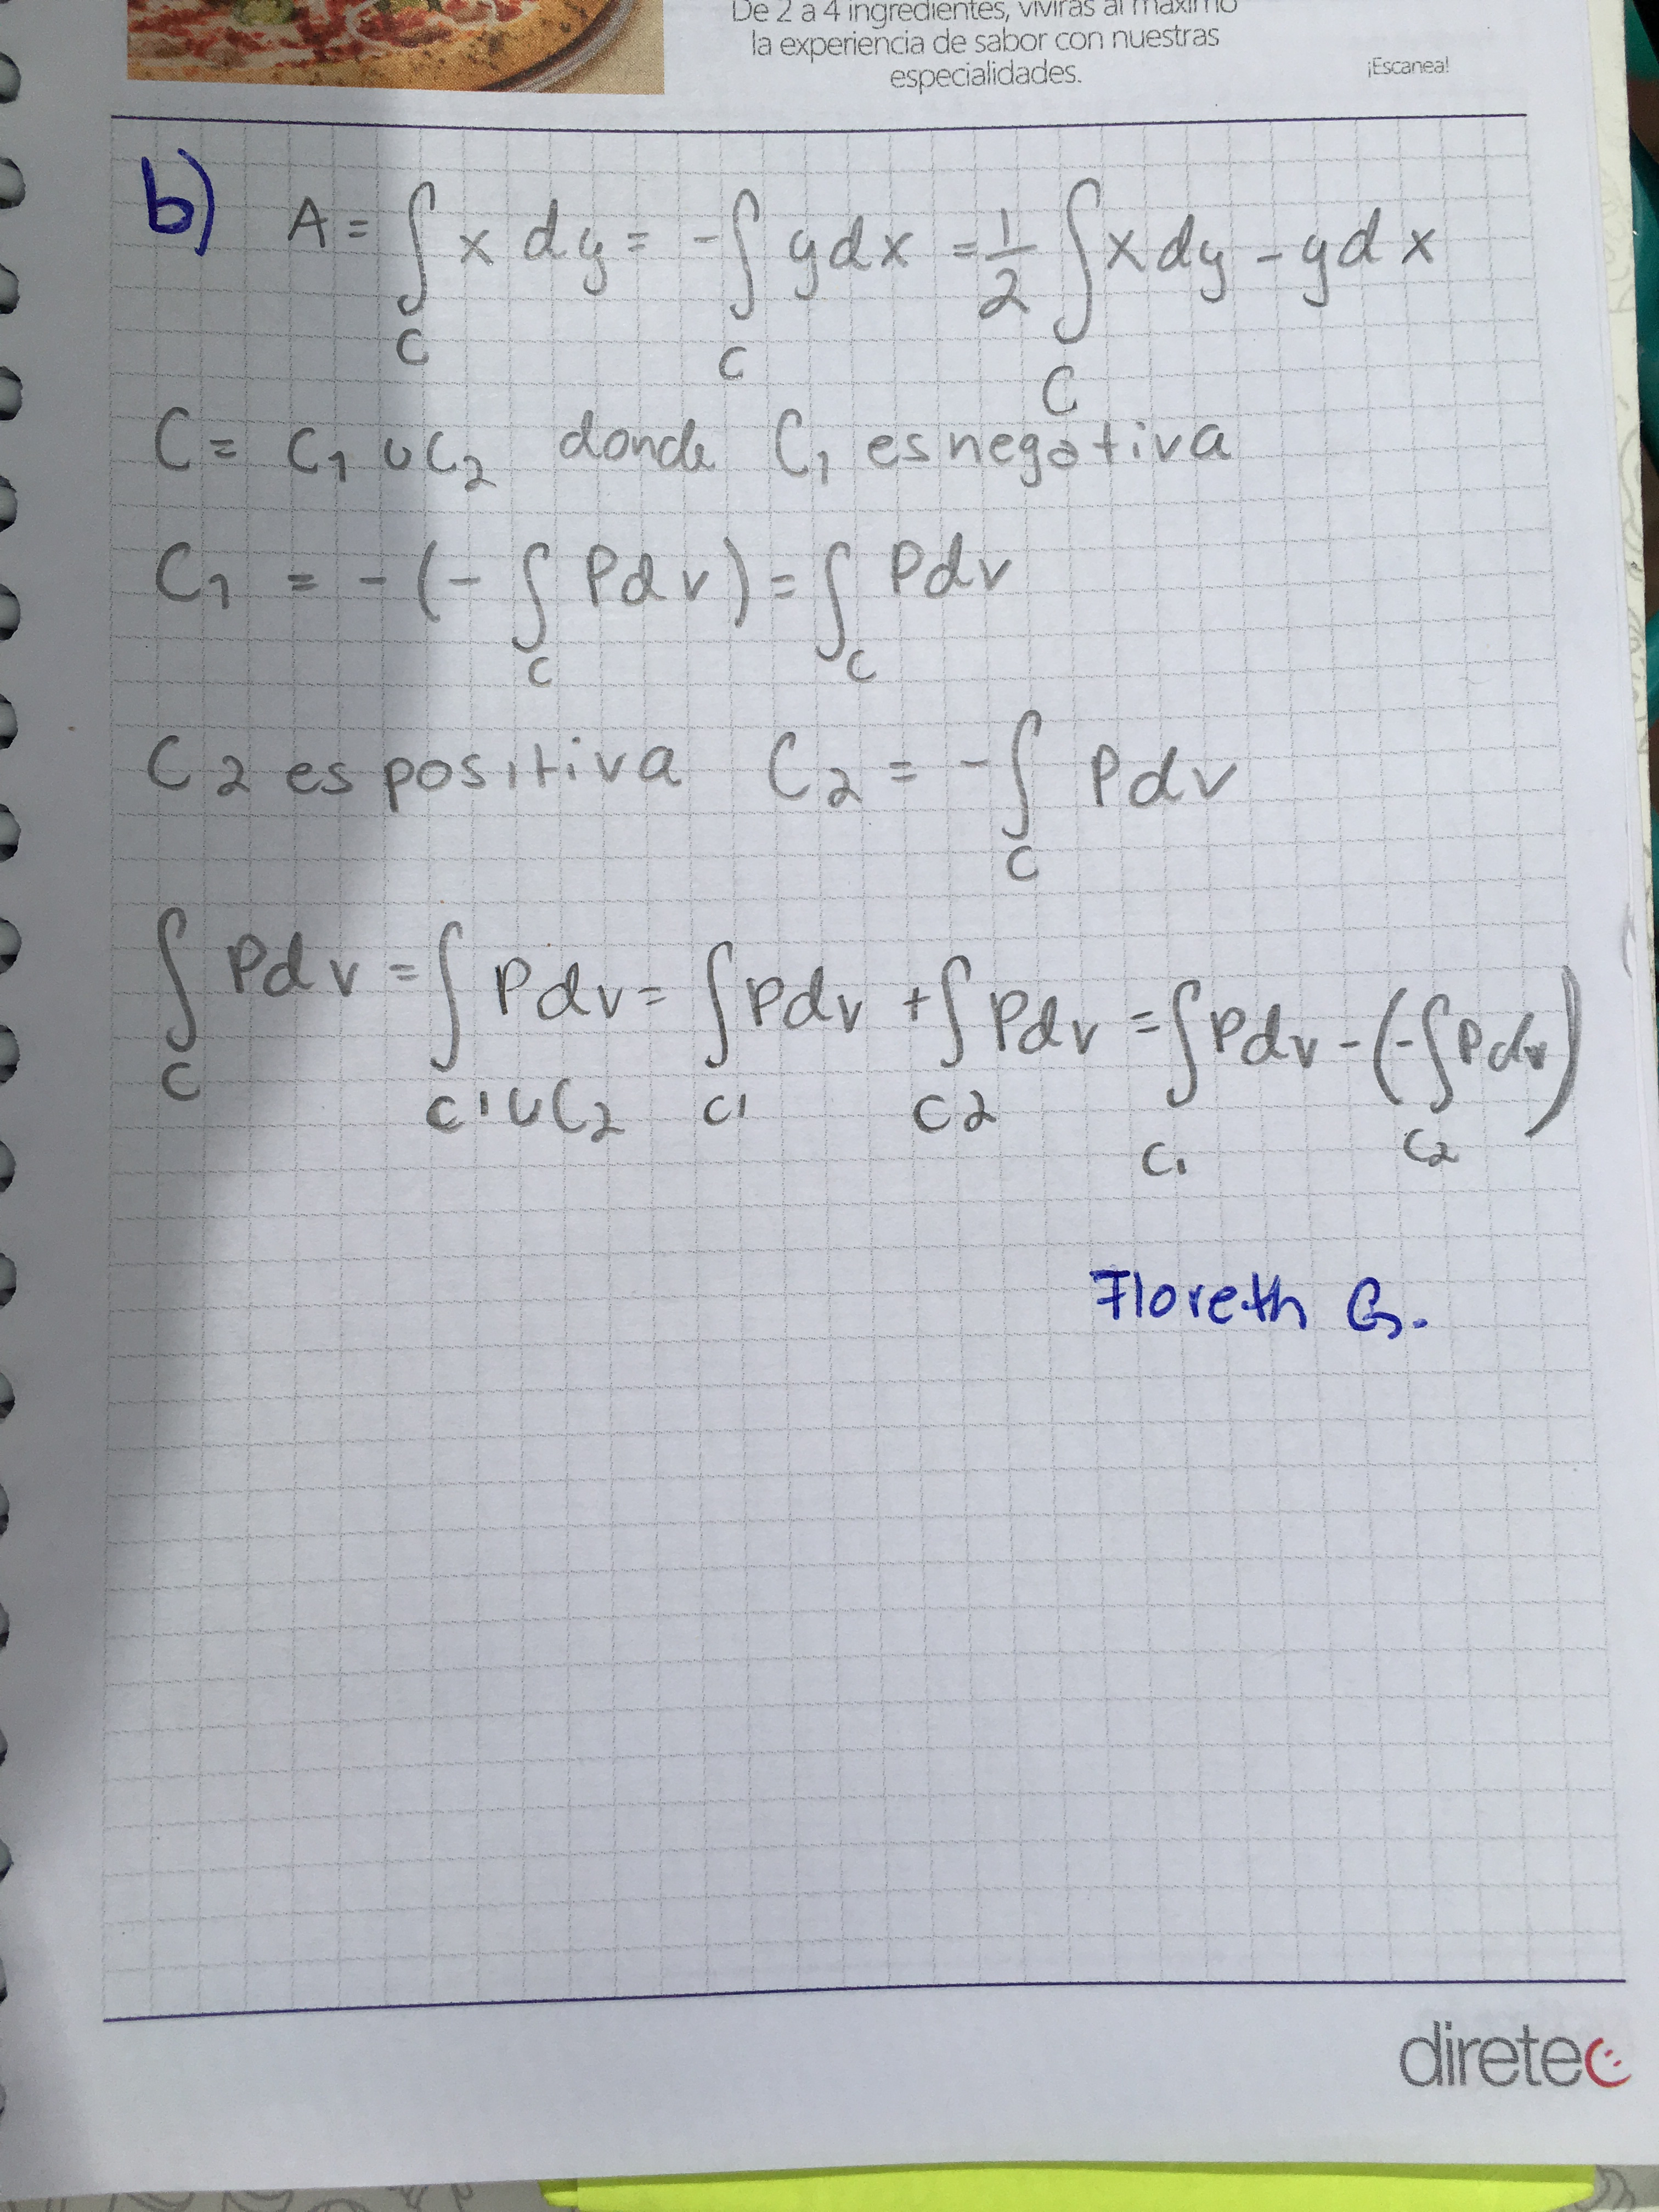 De 2 a 4 ingredientes, vivirás al máximo
la experiencia de sabor con nuestras
especialidades.
¡Escanea!
b) A = ∫_C x dy = -∫_C y dx = 1/2 ∫_C x dy - y dx
C = C₁ ∪ C₂ donde C₁ es negativa
C₁ = -(-∫_C P dv) = ∫_C P dv
C₂ es positiva C₂ = -∫_C P dv
∫_C P dv = ∫_C1∪C2 P dv = ∫_C1 P dv + ∫_C2 P dv = ∫_C₁ P dv - (-∫_C₂ P dv)
Floreth G.
diretec